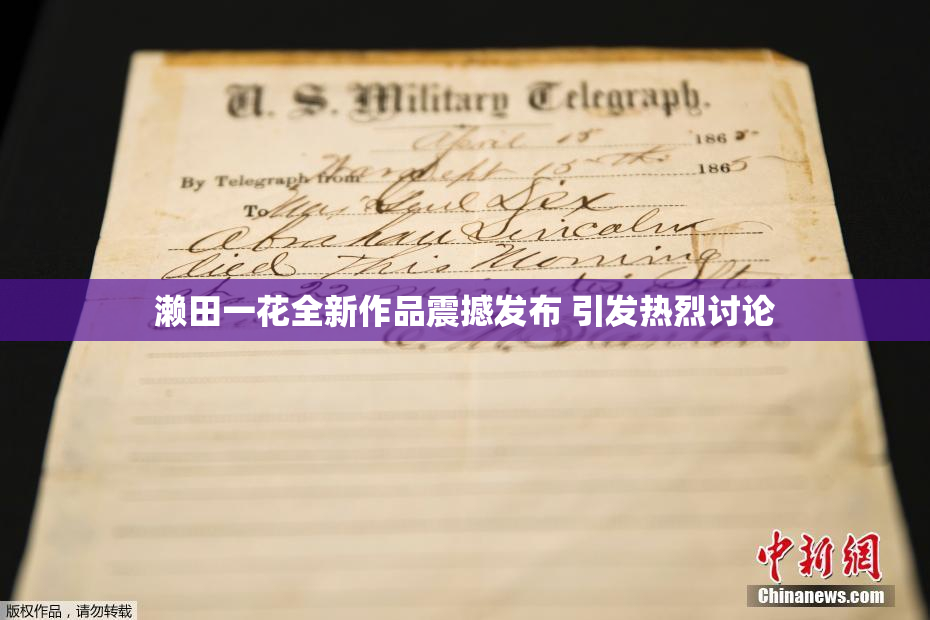 U. S. Military Telegraph.
April 15 1865
By Telegraph from War Dept 15th 1865
To Maj Genl Dix
Abraham Lincoln
died This Morning
at 22 minutes after
濑田一花全新作品震撼发布 引发热烈讨论
E. M. Stanton
中新網
Chinanews.com
版权作品，请勿转载